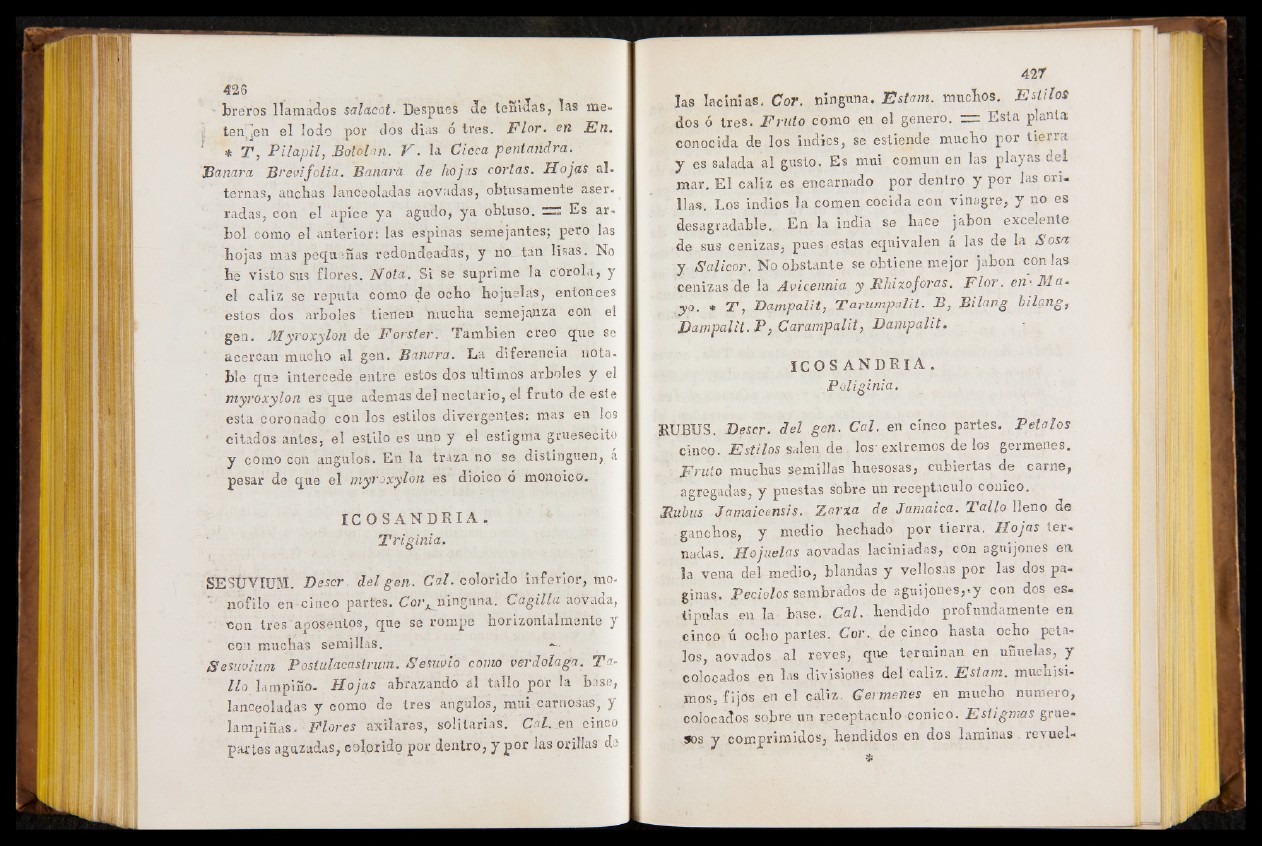 426
breros llamados salacot. Despues de teñidas, las me-
ten en el lodo por dos dias ó tres. Flor. en En.
* T, Pilapil, Botolan. V. la Cicca pentandra.
Banara Brevifolia. Banara de hojas cortas. Hojas al-
ternas, anchas lanceoladas aovadas, obtusamente aser-
radas, con el apice ya agudo, ya obtuso. = Es ar-
bol como el anterior: las espinas semejantes; pero las
hojas mas pequeñas redondeadas, y no tan lisas. No
he visto sus flores. Nota. Si se suprime la corola, y
el caliz se reputa como de ocho hojuelas, entonces
estos dos arboles tienen mucha semejanza con el
gen. Myroxylon de Forster. Tambien creo que se
acercan mucho al gen. Banara. La diferencia nota-
ble que intercede entre estos dos ultimos arboles y el
myroxylon es que ademas del nectario, el fruto de este
esta coronado con los estilos divergentes: mas en los
citados antes, el estilo es uno y el estigma gruesecito
y como con angulos. En la traza no se distinguen, á
pesar de que el myroxylon es dioico ó monoico.
ICOSANDRIA.
Triginia.
SESUVIUM. Descr. del gen. Cal. colorido inferior, mo-
nofilo en cinco partes. Cor, ninguna. Cagilla aovada,
con tres aposentos, que se rompe horizontalmente y
con muchas semillas.
Sesuvium Postulacastrum. Sesuvio como verdolaga. Ta-
llo lampiño. Hojas abrazando al tallo por la base,
lanceoladas y como de tres angulos, mui carnosas, y
lampiñas. Flores axilares, solitarias. Cal. en cinco
partes aguzadas, colorido por dentro, y por las orillas de
427
las lacinias. Cor. ninguna. Estam. muchos. Estilos
dos ó tres. Fruto como en el genero. = Esta planta
conocida de los indios, se estiende mucho por tierra
y es salada al gusto. Es mui comun en las playas del
mar. El caliz es encarnado por dentro y por las ori-
llas. Los indios la comen cocida con vinagre, y no es
desagradable. En la india se hace jabon excelente
de sus cenizas, pues estas equivalen á las de la Sosa
y Salicor. No obstante se obtiene mejor jabon con las
cenizas de la Avicennia y Rhizoforas. Flor. en Ma-
yo. * T, Dampalit, Tarumpalit. B, Bilang bilang,
Dampalit. P, Carampalit, Dampalit.
ICOSANDRIA.
Poliginia.
RUBUS. Descr. del gen. Cal. en cinco partes. Petalos
cinco. Estilos salen de los extremos de los germenes.
Fruto muchas semillas huesosas, cubiertas de carne,
agregadas, y puestas sobre un receptaculo conico.
Rubus Jamaicensis. Zarza de Jamaica. Tallo lleno de
ganchos, y medio hechado por tierra. Hojas ter-
nadas. Hojuelas aovadas laciniadas, con aguijones en
la vena del medio, blandas y vellosas por las dos pa-
ginas. Peciolos sembrados de aguijones, y con dos es-
tipulas en la base. Cal. hendido profundamente en
cinco ú ocho partes. Cor. de cinco hasta ocho peta-
los, aovados al reves, que terminan en uñuelas, y
colocados en las divisiones del caliz. Estam. muchisi-
mos, fijos en el caliz. Germenes en mucho numero,
colocados sobre un receptaculo conico. Estigmas grue-
sos y comprimidos, hendidos en dos laminas revuel-
*